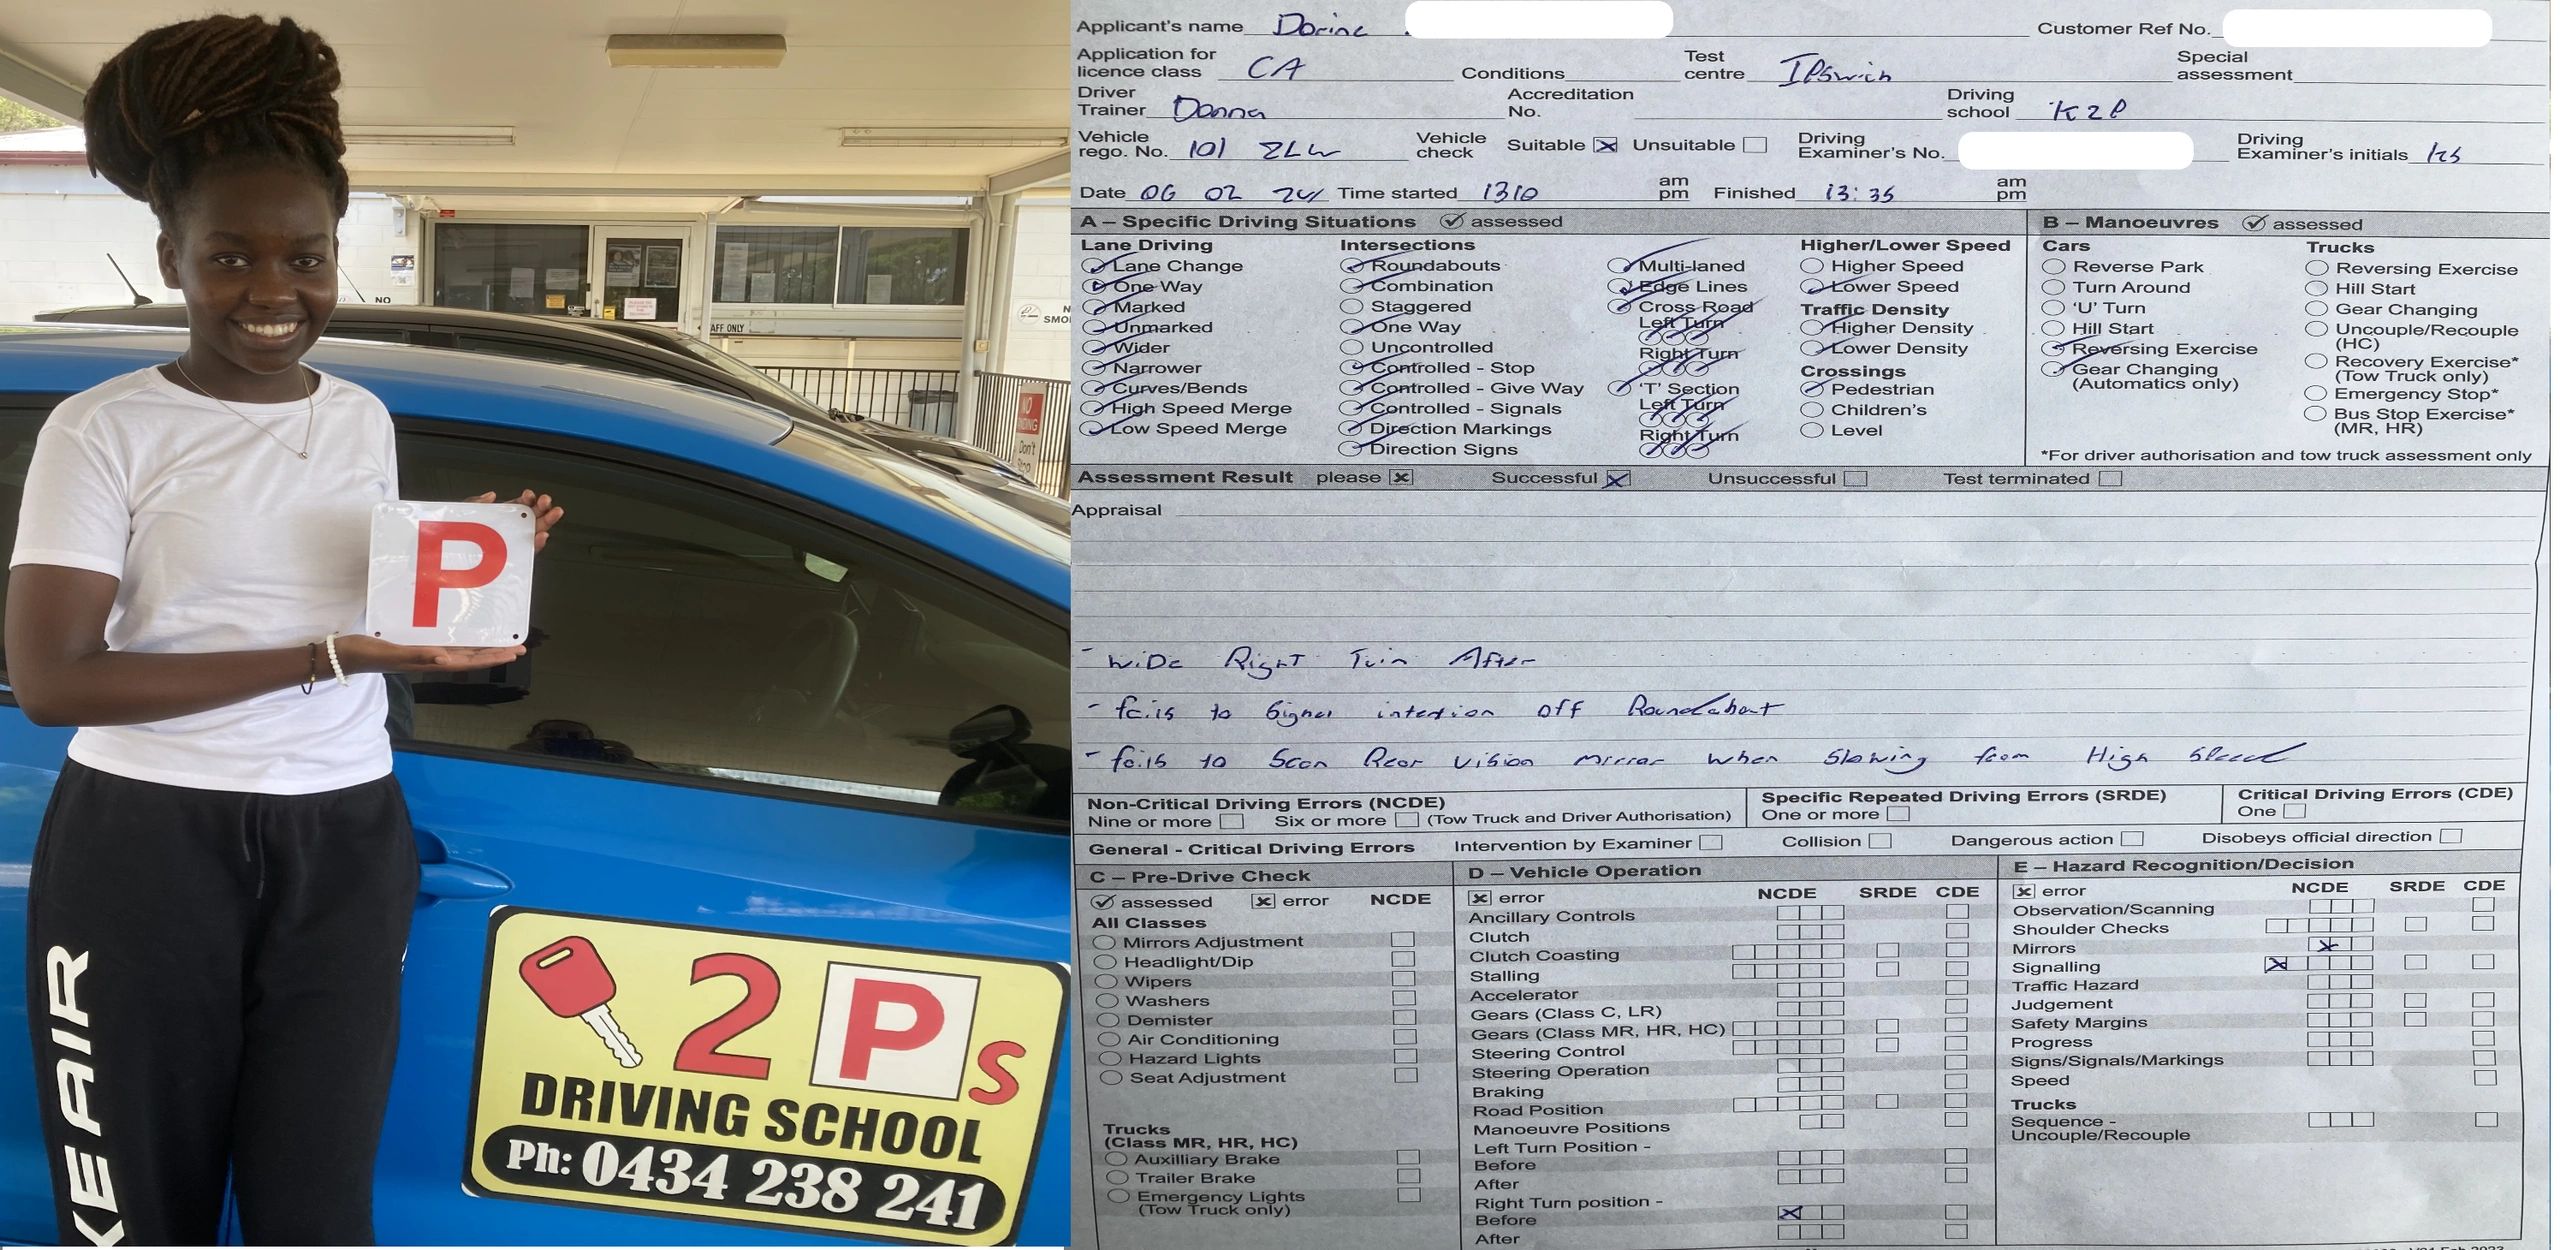 NO
AFF ONLY
NO
SMO
NO
NDING
Don't
Stop
P
KE AIR
2 Ps
DRIVING SCHOOL
Ph: 0434 238 241
Applicant's name Dorine Customer Ref No.
Application for licence class CA Conditions Test centre Ipswich Special assessment
Driver Trainer Donna Accreditation No. Driving school K2P
Vehicle rego. No. 101 ZLW Vehicle check Suitable Unsuitable Driving Examiner's No. Driving Examiner's initials
Date 06 02 24 Time started 1310 am pm Finished 13:35 am pm
A – Specific Driving Situations assessed
Lane Driving
Lane Change
One Way
Marked
Unmarked
Wider
Narrower
Curves/Bends
High Speed Merge
Low Speed Merge
Intersections
Roundabouts
Combination
Staggered
One Way
Uncontrolled
Controlled - Stop
Controlled - Give Way
Controlled - Signals
Direction Markings
Direction Signs
Multi-laned
Edge Lines
Cross Road
Left Turn
Right Turn
'T' Section
Left Turn
Right Turn
Higher/Lower Speed
Higher Speed
Lower Speed
Traffic Density
Higher Density
Lower Density
Crossings
Pedestrian
Children's
Level
B – Manoeuvres assessed
Cars
Reverse Park
Turn Around
'U' Turn
Hill Start
Reversing Exercise
Gear Changing
(Automatics only)
Trucks
Reversing Exercise
Hill Start
Gear Changing
Uncouple/Recouple
(HC)
Recovery Exercise*
(Tow Truck only)
Emergency Stop*
Bus Stop Exercise*
(MR, HR)
*For driver authorisation and tow truck assessment only
Assessment Result please Successful Unsuccessful Test terminated
Appraisal
- Wide Right Turn After
- fails to Signal intention off Roundabout
- fails to Scan Rear vision mirror when Slowing from High Speed
Non-Critical Driving Errors (NCDE)
Nine or more Six or more (Tow Truck and Driver Authorisation)
Specific Repeated Driving Errors (SRDE)
One or more
Critical Driving Errors (CDE)
One
General - Critical Driving Errors Intervention by Examiner Collision Dangerous action Disobeys official direction
C – Pre-Drive Check
assessed error NCDE
All Classes
Mirrors Adjustment
Headlight/Dip
Wipers
Washers
Demister
Air Conditioning
Hazard Lights
Seat Adjustment
Trucks
(Class MR, HR, HC)
Auxilliary Brake
Trailer Brake
Emergency Lights
(Tow Truck only)
D – Vehicle Operation
error NCDE SRDE CDE
Ancillary Controls
Clutch
Clutch Coasting
Stalling
Accelerator
Gears (Class C, LR)
Gears (Class MR, HR, HC)
Steering Control
Steering Operation
Braking
Road Position
Manoeuvre Positions
Left Turn Position -
Before
After
Right Turn position -
Before
After
E – Hazard Recognition/Decision
error NCDE SRDE CDE
Observation/Scanning
Shoulder Checks
Mirrors
Signalling
Traffic Hazard
Judgement
Safety Margins
Progress
Signs/Signals/Markings
Speed
Trucks
Sequence -
Uncouple/Recouple